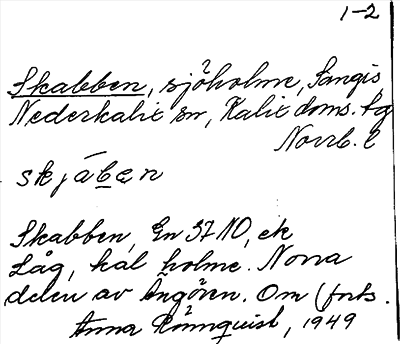 1-2
Skabben, sjöholme, Sangis
Nederkalix sn, Kalix doms. tg
Norrb. l
skjáben
Skabben, En 37 NO, ek
Låg, kal holme. Norra
delen av Angören. Om (forts.
Anna Rönnquist, 1949